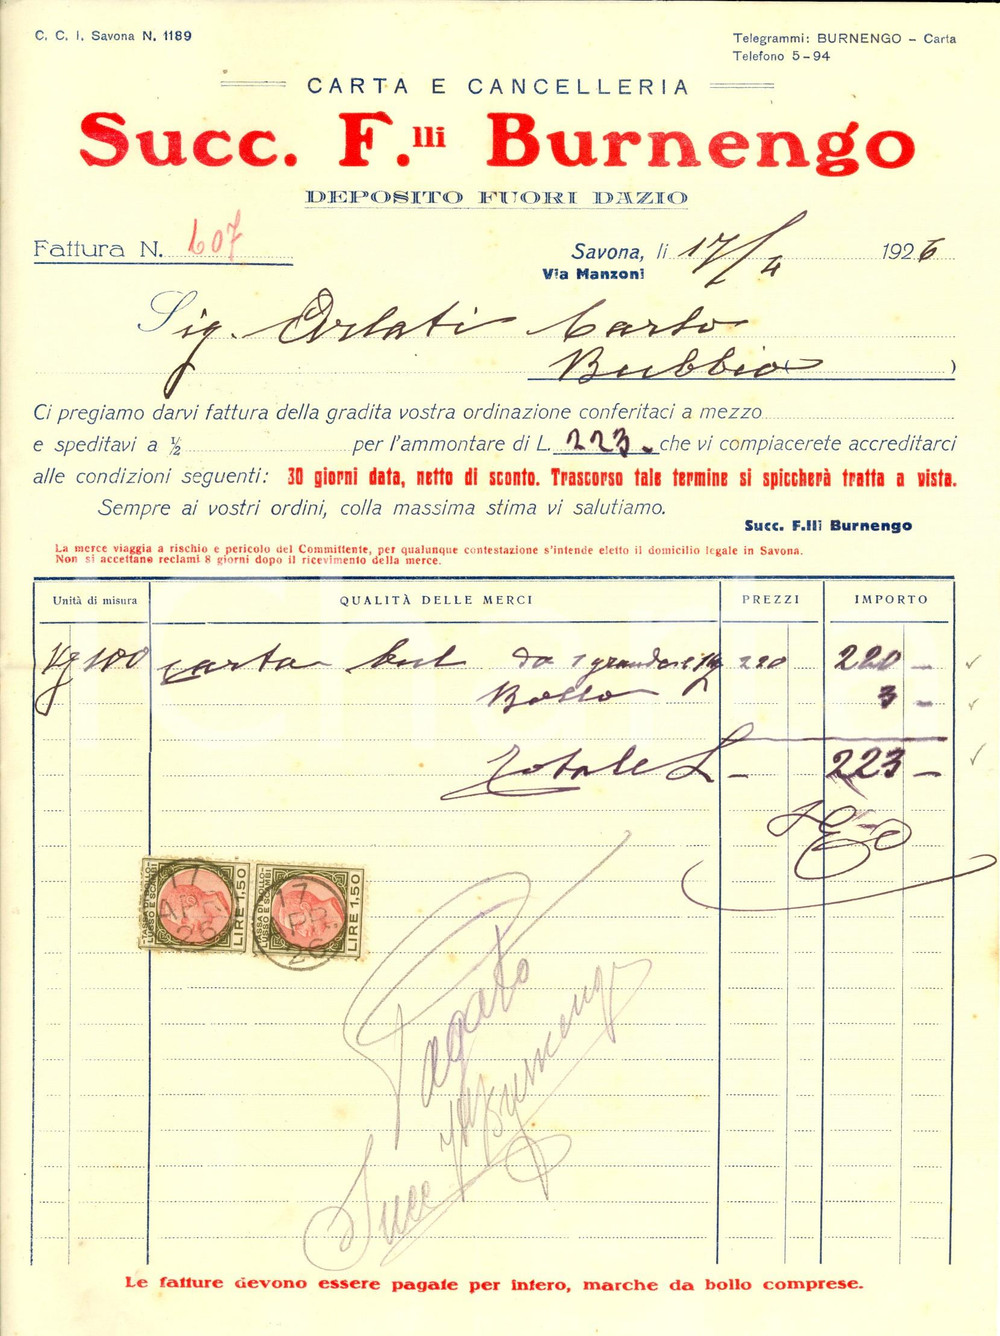 C. C. I. Savona N. 1189
Telegrammi: BURNENGO - Carta
Telefono 5-94
CARTA E CANCELLERIA
Succ. F.lli Burnengo
DEPOSITO FUORI DAZIO
Fattura N. 607
Savona, li 17/4 1926
Via Manzoni
Sig. Orlati Carlo
Bubbio
Ci pregiamo darvi fattura della gradita vostra ordinazione conferitaci a mezzo
e speditavi a ½ per l'ammontare di L. 223.- che vi compiacerete accreditarci
alle condizioni seguenti: 30 giorni data, netto di sconto. Trascorso tale termine si spiccherà tratta a vista.
Sempre ai vostri ordini, colla massima stima vi salutiamo.
Succ. F.lli Burnengo
La merce viaggia a rischio e pericolo del Committente, per qualunque contestazione s'intende eletto il domicilio legale in Savona.
Non si accettano reclami 8 giorni dopo il ricevimento della merce.
Unità di misura QUALITÀ DELLE MERCI PREZZI IMPORTO
Kg 100 carta da 220 220 -
Bollo 3 -
Totale L - 223 -
TASSA DI BOLLO
LUSSO E SCAMBI
LIRE 1,50
17
APR
26
TASSA DI BOLLO
LUSSO E SCAMBI
LIRE 1,50
17
APR
26
Pagato
Succ Flli Burnengo
Le fatture devono essere pagate per intero, marche da bollo comprese.